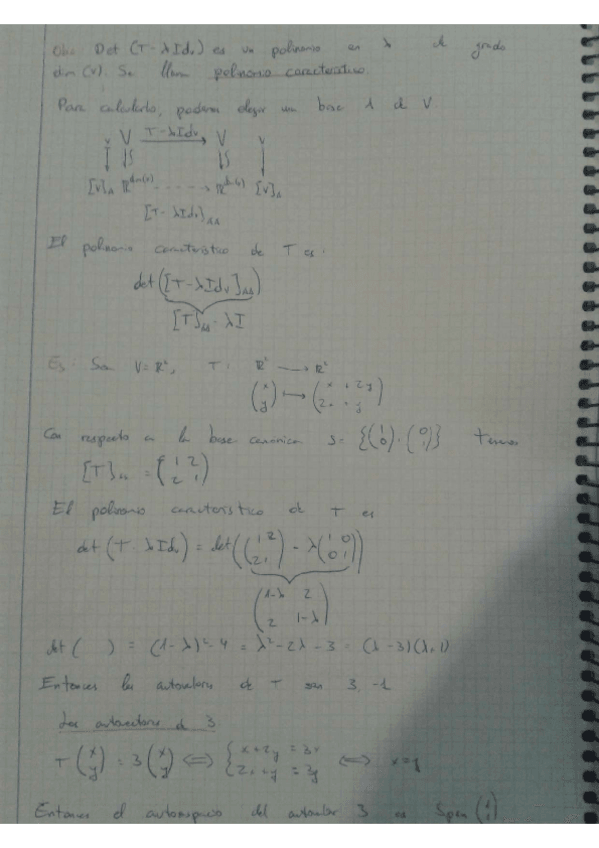 Obs: Det (T - λ Id_v) es un polinomio en λ de grado
dim (V). Se llama polinomio característico.
Para calcularlo, podemos elegir una base Δ de V
v V T-λId_v → V v
[v]_Δ ℝ^dim(v) -----→ ℝ^dim(v) [v]_Δ
[T-λId_v]_ΔΔ
El polinomio característico de T es:
det([T-λId_v]_ΔΔ)
[T]_ΔΔ - λI
Ej: Sea V=ℝ², T: ℝ² → ℝ²
(x y) ↦ (x + 2y 2x + y)
Con respecto a la base canónica = {(1 0), (0 1)} tenemos
[T] = (1 2 2 1)
El polinomio característico de T es
det (T - λ Id_v) = det((1 2 2 1) - λ(1 0 0 1))
(1-λ 2 2 1-λ)
det ( ) = (1-λ)² - 4 = λ² - 2λ - 3 = (λ-3)(λ+1)
Entonces los autovalores de T son 3, -1
Los autovectores de 3
T(x y) = 3(x y) ⟺ {x+2y = 3x 2x+y = 3y ⟺ x=y
Entonces el autoespacio del autovalor 3 es Span (1 1)